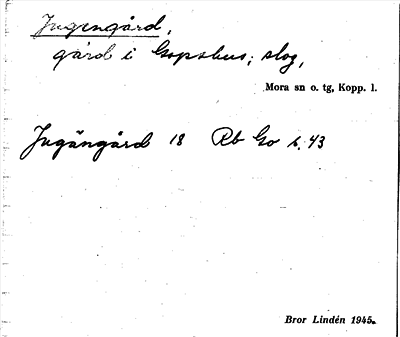 Jugengård,
gård i Gopshus; slog,
Mora sn o. tg, Kopp. l.
Jugängård 18 Rb Go s. 43
Bror Lindén 1945.